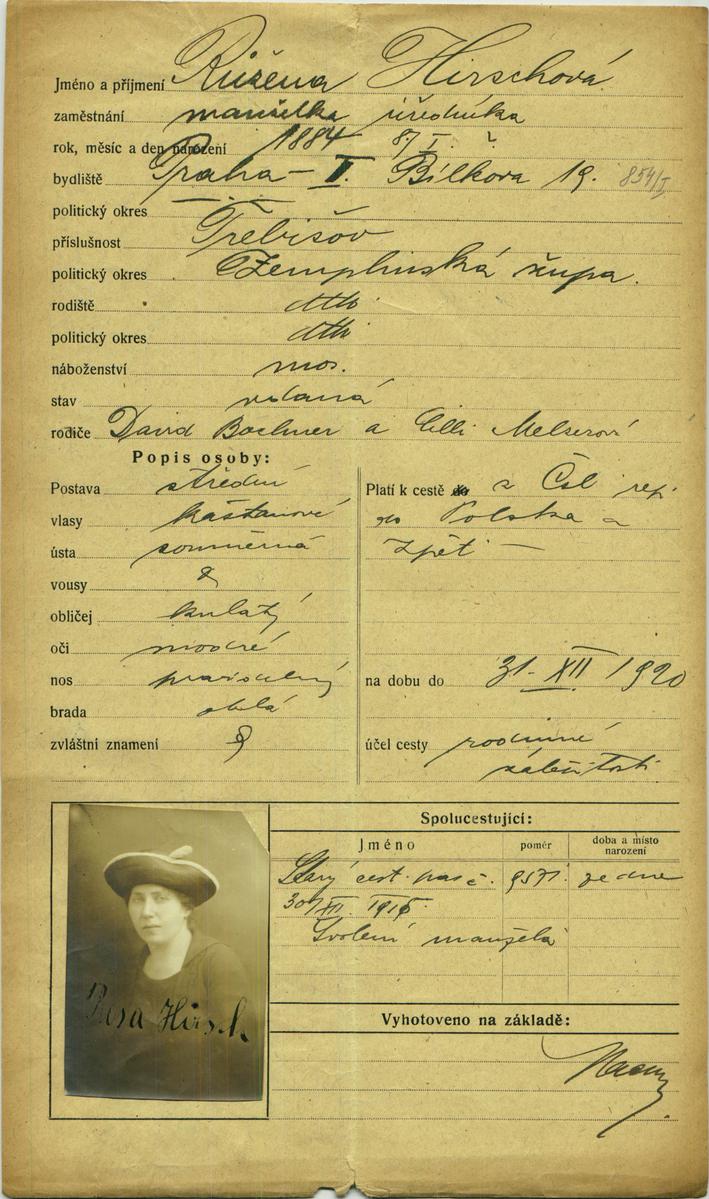 Jméno a příjmení Růžena Hirschová
zaměstnání manželka úředníka
rok, měsíc a den narození 1884 8/I.
bydliště Praha - I. Bílkova 19. 854/I
politický okres
příslušnost Trebišov
politický okres Zemplinská župa.
rodiště dtto
politický okres dtto
náboženství mos.
stav vdaná
rodiče David Bochner a Cilli Melzerová
Popis osoby:
Postava střední
vlasy kaštanové
ústa souměrná
vousy
obličej kulatý
oči modré
nos pravidelný
brada oblá
zvláštní znamení
Platí k cestě do z Čsl rep.
do Polska a
zpět -
na dobu do 31. XII 1920
účel cesty rodinné
záležitosti
Spolucestující:
Jméno poměr doba a místo narození
Starý cest. pas č. 9571. ze dne
30/XII. 1918.
Svolení manžela
Vyhotoveno na základě:
Rosa Hirsch